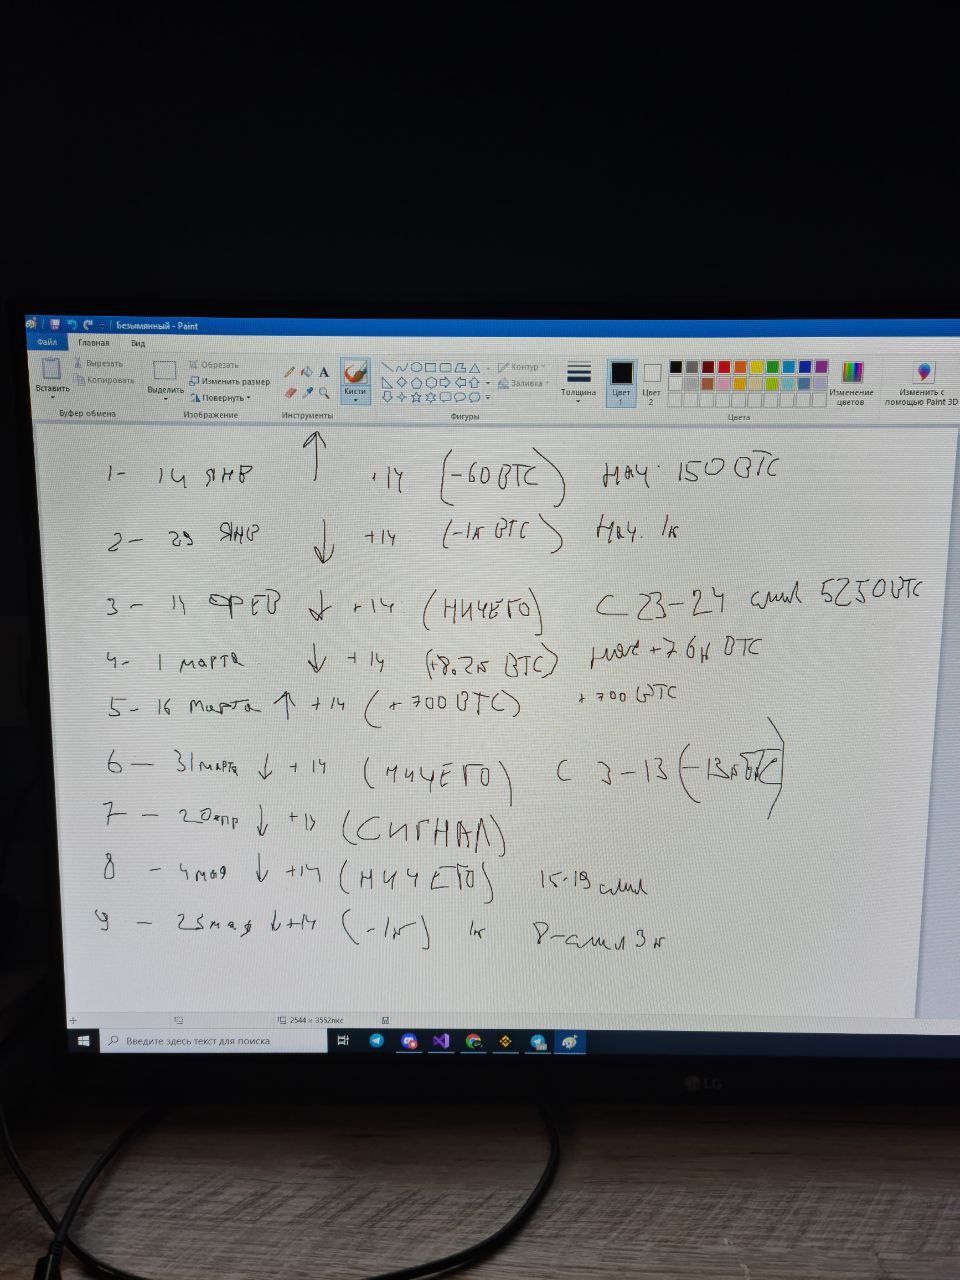 Безымянный - Paint
Файл Главная Вид
Вставить Вырезать Копировать
Буфер обмена
Выделить Обрезать Изменить размер Повернуть
Изображение
Инструменты
Кисти
Контур Заливка
Фигуры
Толщина
Цвет 1 Цвет 2
Цвета
Изменение цветов
Изменить с помощью Paint 3D
1- 14 ЯНВ ↑ +14 (-60 BTC) НАЧ. 150 BTC
2- 29 ЯНВ ↓ +14 (-1к BTC) НАЧ. 1к
3- 14 ФЕВ ↓ +14 (НИЧЕГО) С 23-24 слил 5250 BTC
4- 1 марта ↓ +14 (+8.2к BTC) +76к BTC
5- 16 марта ↑ +14 (+700 BTC) +700 BTC
6- 31 марта ↓ +14 (НИЧЕГО) С 3-13 (-13к BTC)
7- 20 апр ↓ +14 (СИГНАЛ)
8 - 4 мая ↓ +14 (НИЧЕГО) 15-19 слил
9 - 25 мая ↓ +14 (-1к) 1к 8-слил 3к
2544 × 3552пкс
Введите здесь текст для поиска
LG